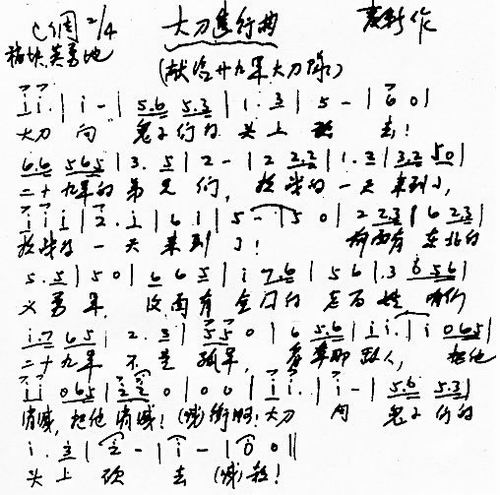 C调 2/4 大刀进行曲 麦新作
稍快 英勇地
(献给廿九军大刀队)
i i. | i - | 5.6 5.3 | 1. 3 | 5 - | 6 0 |
大刀 向 鬼子们的 头上 砍 去!
6.6 565 | 3. 5 | 2 - | 2 2.2 | 1. 2 | 3.2 50 |
二十九军的弟兄们, 抗战的一天来到了,
i i i | 2. i | 6 i | 5 - | 5 0 | 2 2 3 | 6 2 3 |
抗战的一天来到了! 前面有 东北的
5. 5 | 5 0 | 6 6 5 | i 7.6 | 5 6 | .3 0 5 6 |
义勇军, 后面有 全国的 老百姓 咱们
i.7 65 | 2. 3 | 55 0 | 6 5.6 | i i. | i 065 |
二十九军 不是 孤军, 看准那敌人, 把他
i i 065 | 2 2 0 | 0 0 | i i. | i - | 5.6 5.3 |
消灭, 把他消灭! (喊)冲啊! 大刀 向 鬼子们的
i. 3 | 2 - | i - | i 0 0 ||
头上 砍 去 (喊)杀!